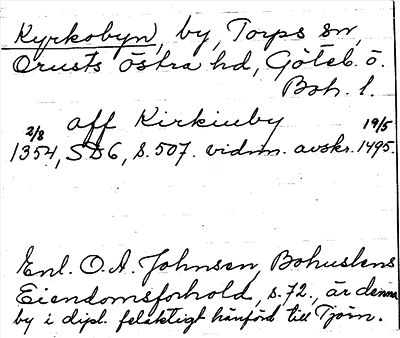 Kyrkobyn, by, Torps sn,
Orusts östra hd, Göteb. o.
Boh. l.
aff Kirkiuby
2/8 19/5
1354, SD6, s. 507. vidim. avskr. 1495.
Enl. O. A. Johnsen, Bohuslens
Eiendomsforhold, s. 72., är denna
by i dipl. felaktigt hänförd till Tjörn.